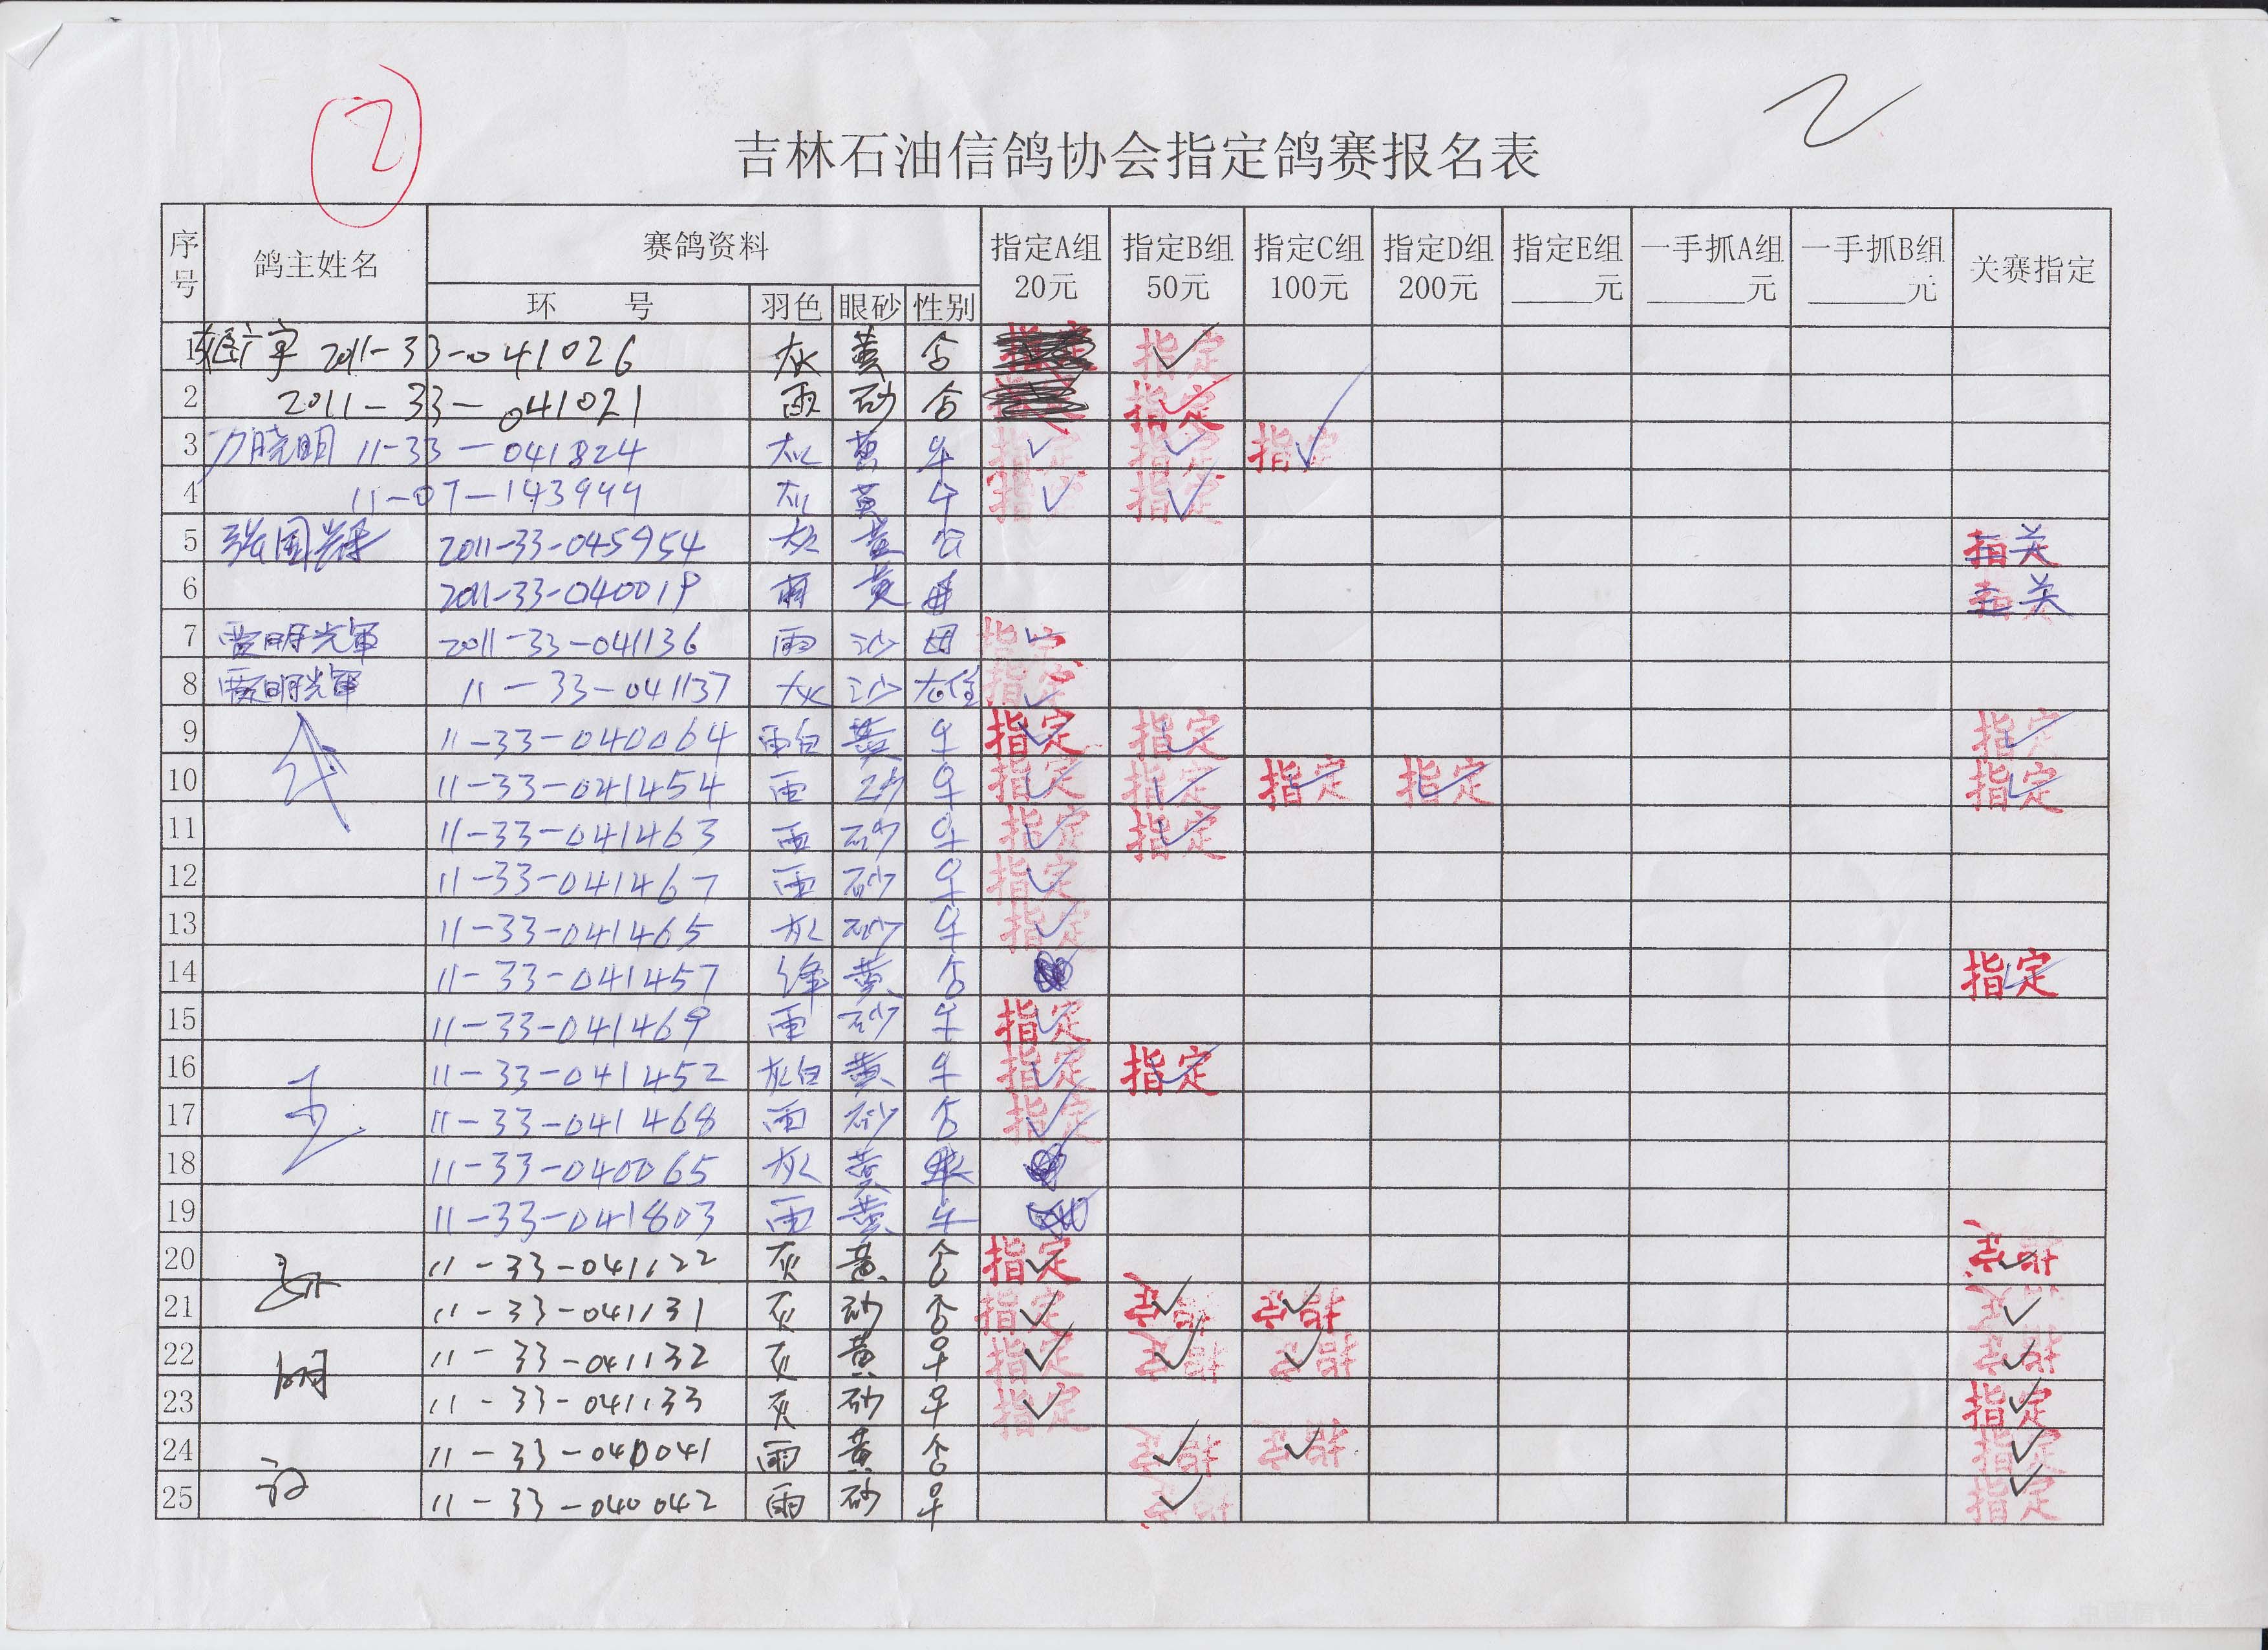 2
2
吉林石油信鸽协会指定鸽赛报名表
序号 鸽主姓名 赛鸽资料 指定A组 20元 指定B组 50元 指定C组 100元 指定D组 200元 指定E组 ____元 一手抓A组 ____元 一手抓B组 ____元 关赛指定
环 号 羽色 眼砂 性别
1 宇 2011-33-041026 灰 黄 指定 指定 ✓
2 2011-33-041021 雨 砂 指定 ✓
3 晓明 11-33-041824 灰 黄 指定 ✓ 指定 ✓ 指定 ✓
4 11-07-143999 灰 黄 指定 ✓ 指定 ✓
5 张国辉 2011-33-045954 灰 黄 公 关
6 2011-33-040019 雨 黄 母 关
7 贾明光軍 2011-33-041136 雨 沙 母 指定 ✓
8 贾明光軍 11-33-041137 灰 沙 指定 ✓
9 11-33-040064 雨白 黄 ♀ 指定 ✓ 指定 ✓ 指定 ✓
10 11-33-041454 雨 砂 ♀ 指定 ✓ 指定 ✓ 指定 ✓ 指定 ✓ 指定 ✓
11 11-33-041463 雨 砂 ♀ 指定 ✓ 指定 ✓
12 11-33-041467 雨 砂 ♀ 指定 ✓
13 11-33-041465 灰 砂 ♀ 指定 ✓
14 11-33-041457 绛 黄 指定 ✓
15 11-33-041469 雨 砂 ♀ 指定 ✓
16 11-33-041452 灰白 黄 ♀ 指定 ✓ 指定 ✓
17 11-33-041468 雨 砂 指定 ✓
18 11-33-040065 灰 黄
19 11-33-041803 雨 黄 ♀
20 11-33-041122 灰 黄 指定 ✓ 指定 ✓
21 11-33-041131 灰 砂 指定 ✓ 指定 ✓ 指定 ✓ 指定 ✓
22 明 11-33-041132 灰 黄 ♀ 指定 ✓ 指定 ✓ 指定 ✓ 指定 ✓
23 11-33-041133 灰 砂 ♀ 指定 ✓ 指定 ✓
24 11-33-040041 雨 黄 指定 ✓ 指定 ✓ 指定 ✓
25 11-33-040042 雨 砂 ♀ 指定 ✓ 指定 ✓